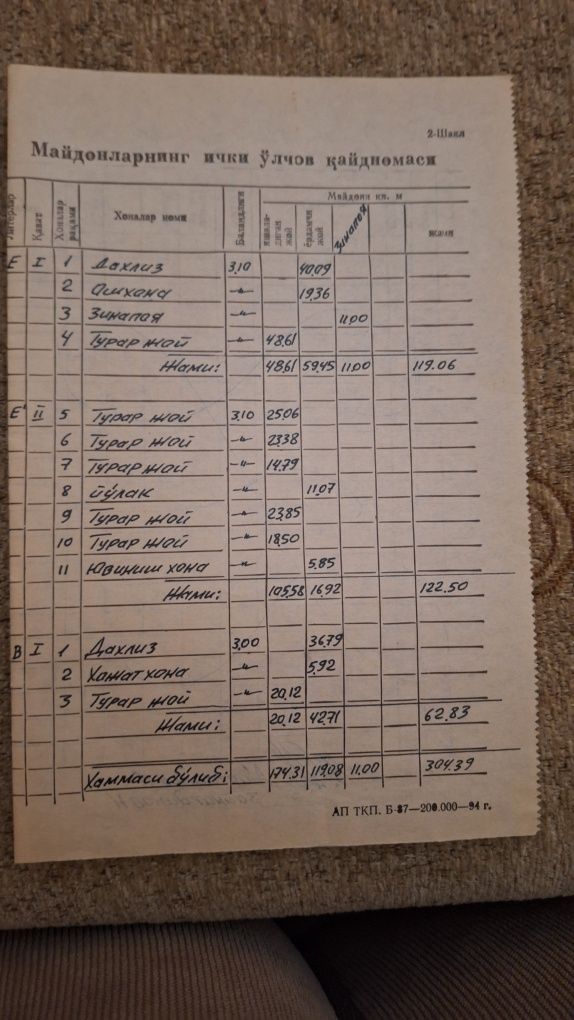 2-Шакл
Майдонларнинг ички ўлчов қайдномаси
Литерлар Қават Хоналар рақами Хоналар номи Баландлиги Майдони кв. м
яшаладиган жой ёрдамчи жой Зинапоя жами
Е I 1 Дахлиз 3,10 40.09
2 Ошхона -"- 19.36
3 Зинапоя -"- 11.00
4 Турар жой -"- 48.61
Жами: 48.61 59.45 11.00 119.06
Е' II 5 Турар жой 3.10 25.06
6 Турар жой -"- 23.38
7 Турар жой -"- 14.79
8 йўлак -"- 11.07
9 Турар жой -"- 23.85
10 Турар жой -"- 18.50
11 Ювиниш хона -"- 5.85
Жами: 105.58 16.92 122.50
В I 1 Дахлиз 3,00 36.79
2 Хожатхона -"- 5.92
3 Турар жой -"- 20.12
Жами: 20.12 42.71 62.83
Хаммаси бўлиб: 174.31 119.08 11.00 304.39
АП ТКП. Б-87—200.000—94 г.